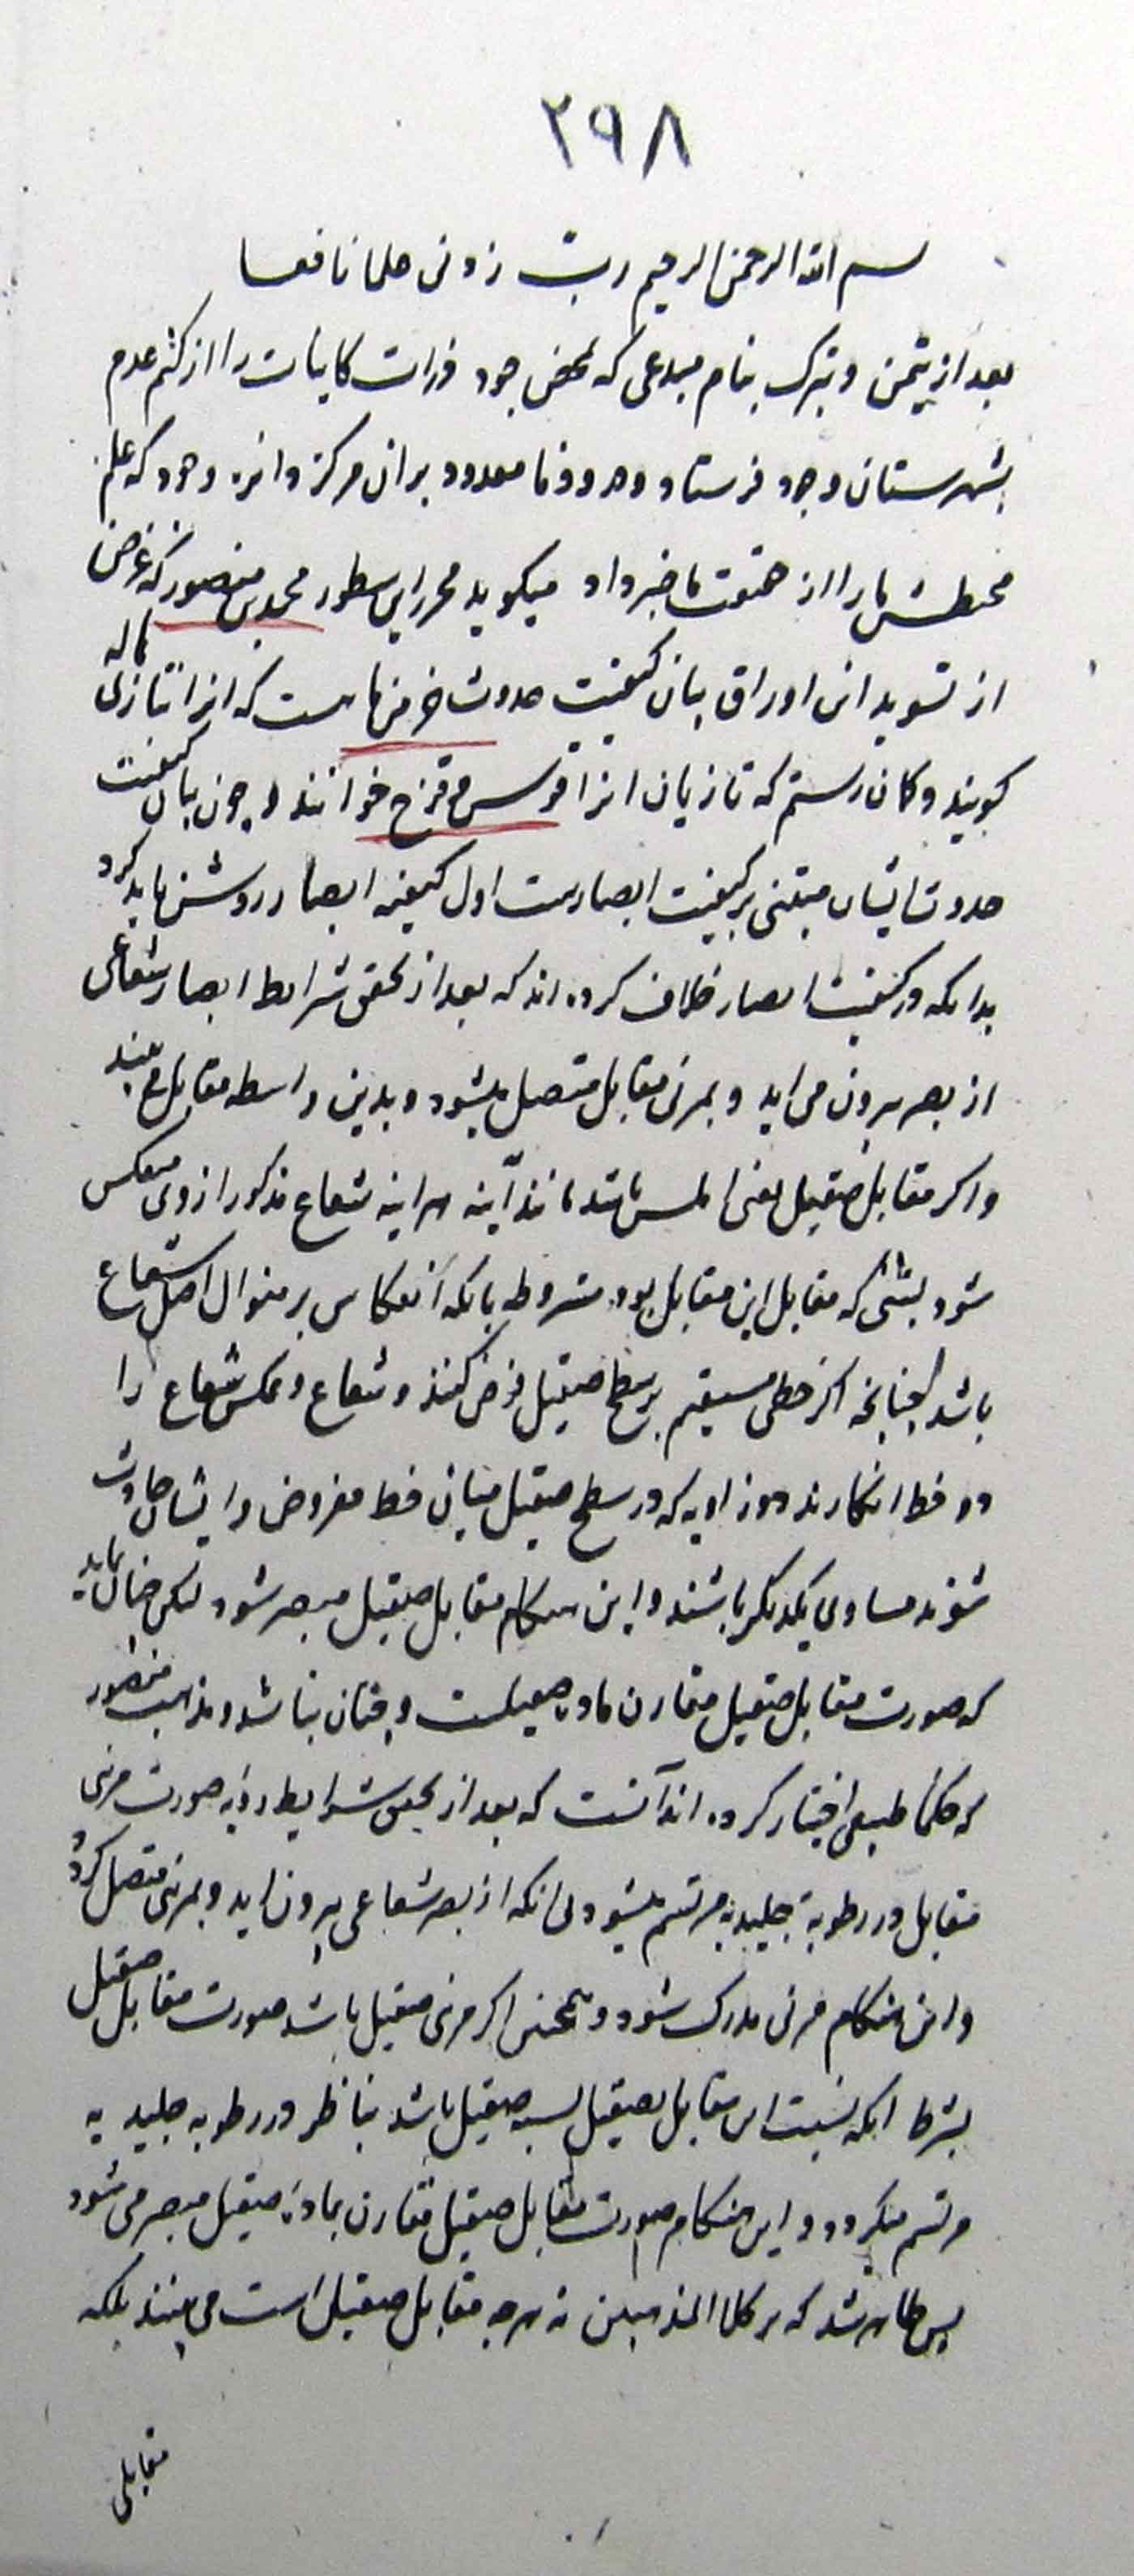 ۲۹۸
بسم الله الرحمن الرحیم رب زدنی علما نافعا
بعد از تیمن و تبرک بنام مبدعی که بمحض جود ذرات کاینات را از کتم عدم
بشهرستان وجود فرستاد و درود نامعدود بران مرکز دایره وجود که علم
محیطش ما را از حقیقت ما خبر داد میگوید محرر این سطور محمد بن منصور که غرض
از تسوید این اوراق بیان کیفیت حدوث خرمن ماه است که انرا بتازی هاله
کویند و کمان رستم که تازیان انرا قوس قزح خوانند و چون بیان کیفیت
حدوث ایشان مبتنی بر کیفیت ابصار ست اول کیفیه ابصار روشن باید کرد
بدانکه در کیفیت ابصار خلاف کرده اند که بعد از تحقق شرایط ابصار شعاعی
از بصر بیرون می اید و بمرئی مقابل متصل میشود و بدین واسطه مقابل می بیند
و اکر مقابل صقیل یعنی املس باشد مانند آینه هراینه شعاع مذکور از وی منعکس
شود بشئی که مقابل این مقابل بود مشروط بانکه انعکاس بر منوال اصل شعاع
باشد چنانچه اکر خطی مستقیم بر سطح صقیل فرض کنند و شعاع و عکس شعاع را
دو خط انکارند دو زاویه که در سطح صقیل میان خط مفروض و ایشان حادث
شوند مساوی یکدیکر باشند و این هنکام مقابل صقیل مبصر شود لیکن چنان نماید
که صورت مقابل صقیل مقارن ماده صقیلست و چنان نباشد و مذهب منصور
که حکماء طبیعی اختیار کرده اند آنست که بعد از تحقق شرایط رؤیه صورت مرئی
مقابل در رطوبة جلیدیه مرتسم میشود بی انکه از بصر شعاعی بیرون اید و بمرئی متصل کردد
و این هنکام مرئی مدرک شود و همچنین اکر مرئی صقیل باشد صورت مقابل صقیل
بشرط انکه نسبت این مقابل بصقیل نسبت صقیل باشد بناظر در رطوبه جلیدیه
مرتسم میکردد و این هنکام صورت مقابل صقیل مقارن بماده صقیل مبصر می شود
پس ظاهر شد که بر کلا المذهبین نه هرچه مقابل صقیل است می بینند بلکه
مقابلی